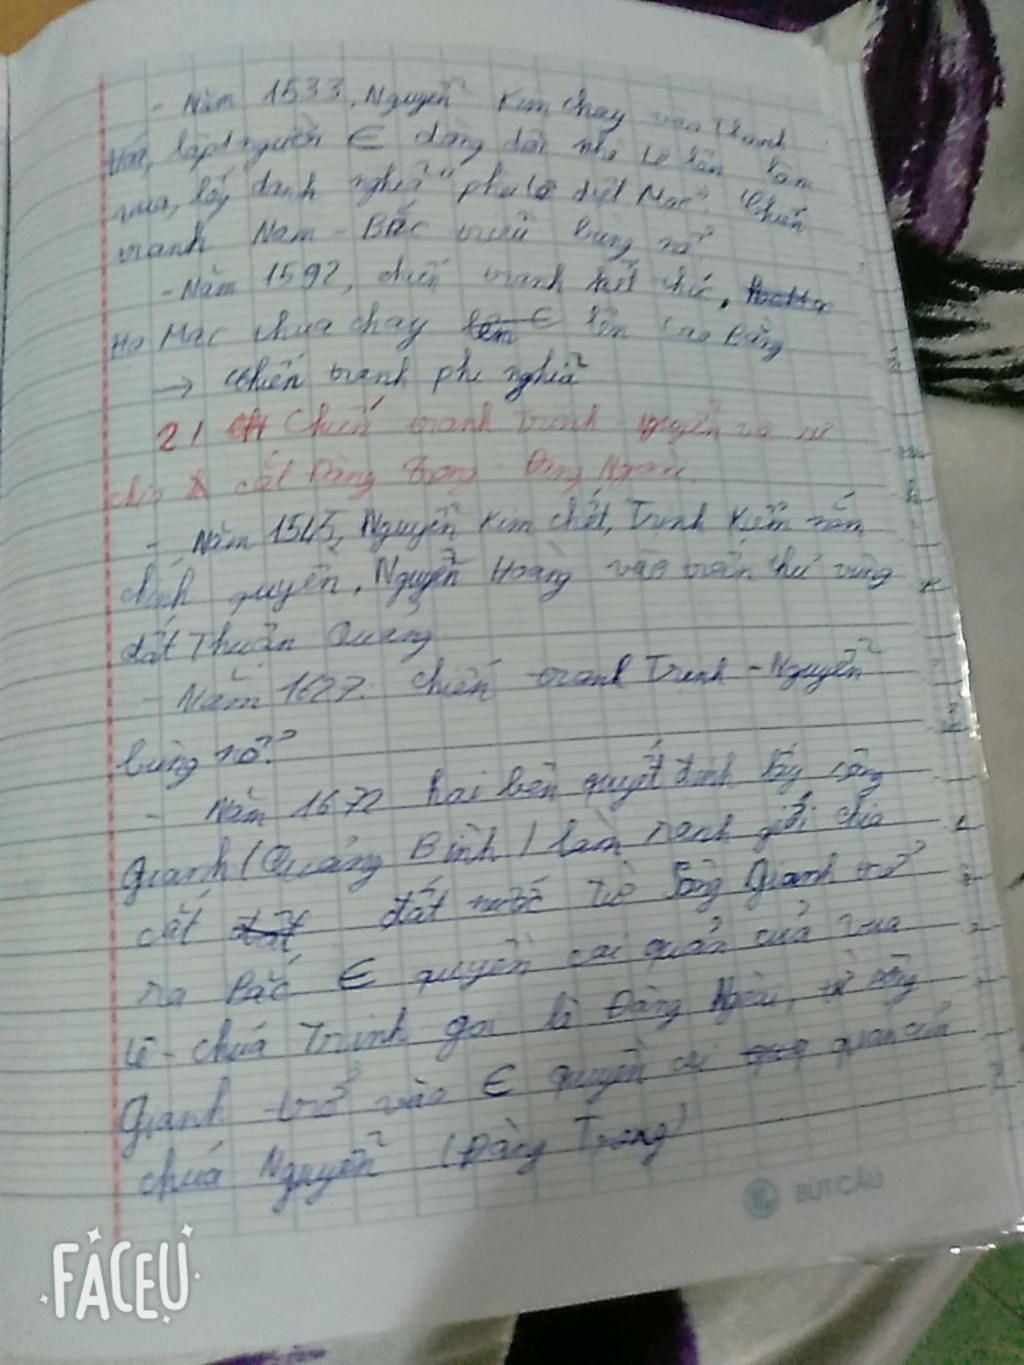 - Năm 1533, Nguyễn Kim chạy vào Thanh
Hoá, lập 1 người ∈ dòng dõi nhà Lê lên làm
vua, lấy danh nghĩa "phù Lê diệt Mạc". Chiến
tranh Nam - Bắc triều bùng nổ.
- Năm 1592, chiến tranh kết thúc,
Họ Mạc chưa chạy ∈ lên Cao Bằng
→ Chiến tranh phi nghĩa
2/ Chiến tranh Trịnh - Nguyễn và sự
chia cắt Đàng Trong - Đàng Ngoài.
- Năm 1545, Nguyễn Kim chết, Trịnh Kiểm nắm
chính quyền, Nguyễn Hoàng vào trấn thủ vùng
đất Thuận Quảng
- Năm 1627: Chiến tranh Trịnh - Nguyễn
bùng nổ.
- Năm 1672 hai bên quyết định lấy sông
Gianh (Quảng Bình) làm ranh giới chia
cắt đất nước từ Sông Gianh trở
ra Bắc ∈ quyền cai quản của vua
Lê - chúa Trịnh gọi là Đàng Ngoài, từ sông
Gianh trở vào ∈ quyền cai quản của
chúa Nguyễn (Đàng Trong)
BÚT CẦU
FACEU